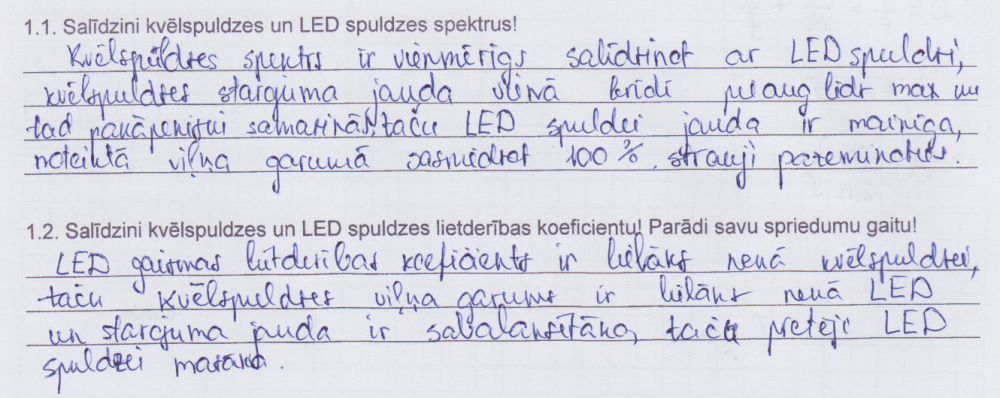 1.1. Salīdzini kvēlspuldzes un LED spuldzes spektrus!
Kvēlspuldzes spektrs ir vienmērīgs salīdzinot ar LED spuldzi,
kvēlspuldzes starojuma jauda vilnā brīdī pieaug līdz max un
tad pakāpeniski samazinās, taču LED spuldzei jauda ir mainīga,
noteiktā viļņa garumā sasniedzot 100 %, strauji
1.2. Salīdzini kvēlspuldzes un LED spuldzes lietderības koeficientu! Parādi savu spriedumu gaitu!
LED gaismas lietderības koeficients ir lielāks nekā kvēlspuldzei,
taču kvēlspuldzes viļņa garums ir lielāks nekā LED
un starojuma jauda ir sabalansētāka, taču pretēji LED
spuldzei mazāka.